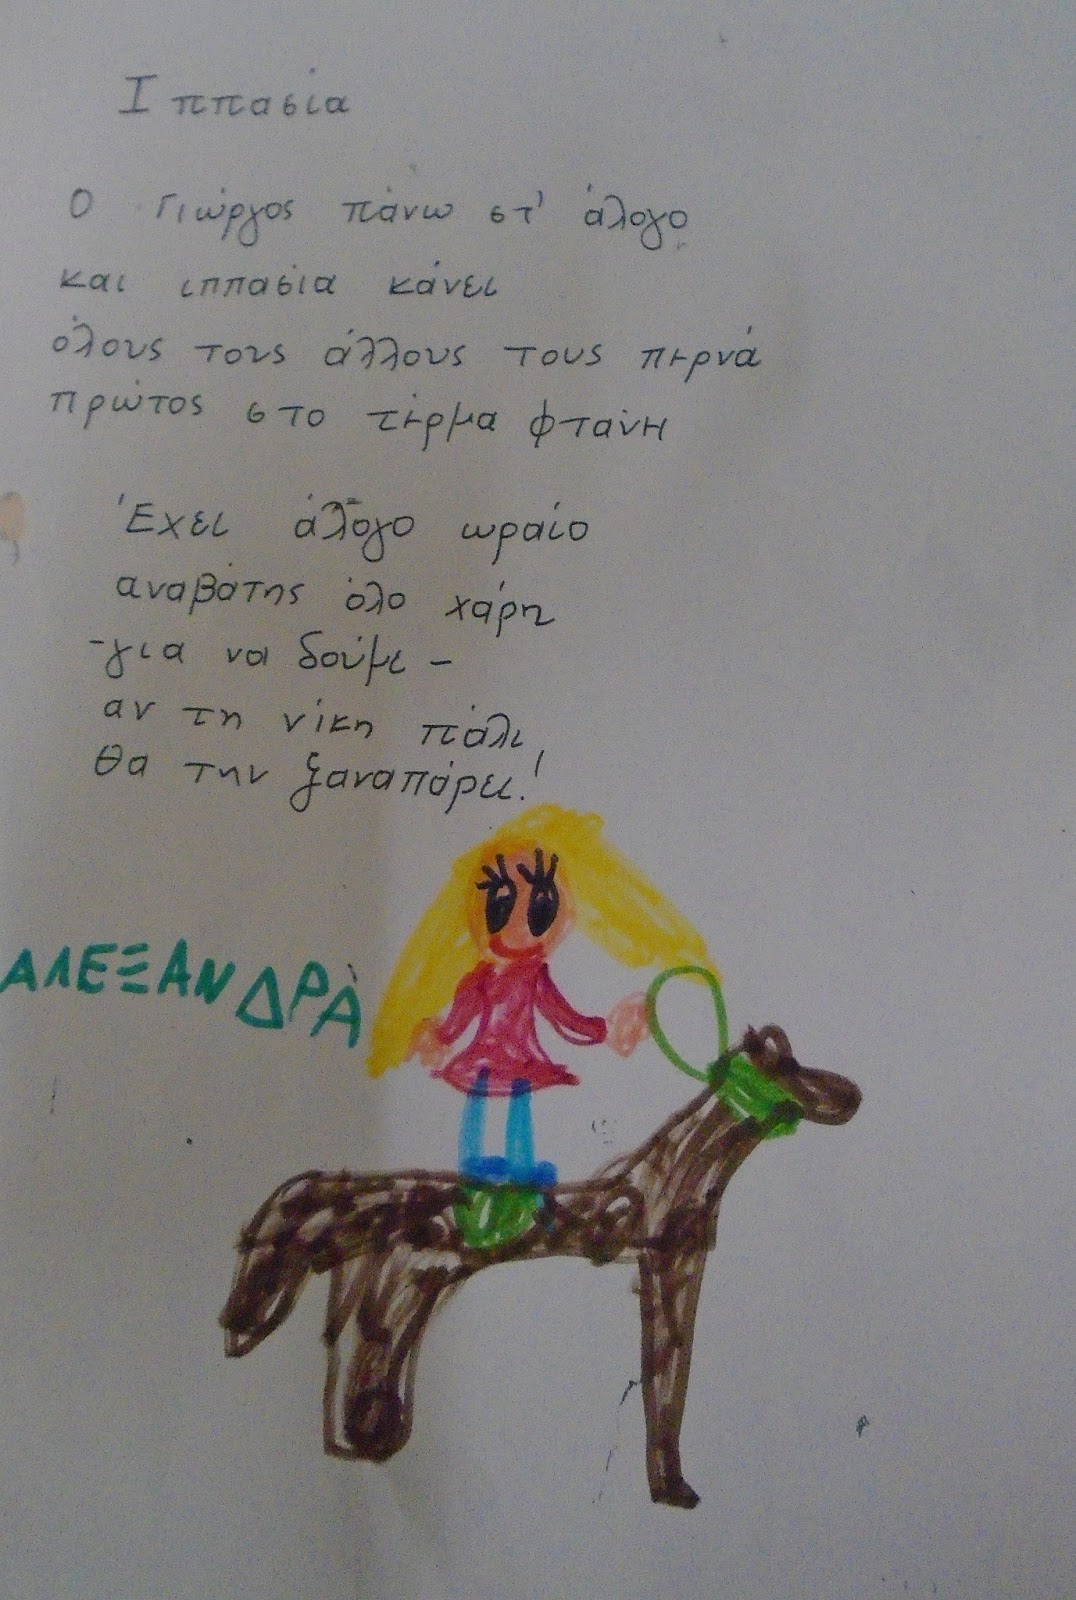 Ιππασία
Ο Γιώργος πάνω στ' άλογο
και ιππασία κάνει
όλους τους άλλους τους περνά
πρώτος στο τέρμα φτάνη
Έχει άλογο ωραίο
αναβάτης όλο χάρη
-για να δούμε-
αν τη νίκη πάλι
θα την ξαναπάρει!
ΑΛΕΞΑΝΔΡΑ